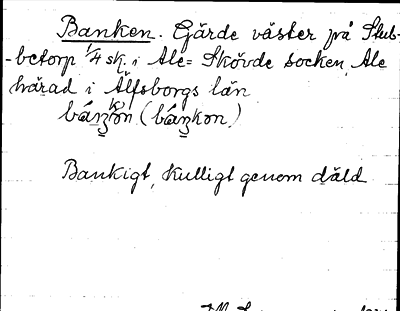 Banken. Gärde väster på Stub-
-betorp 1/4 sk. i Ale= Skövde socken, Ale
härad i Älfsborgs län
báŋkon (báŋkon)
Bankigt, kulligt genom däld